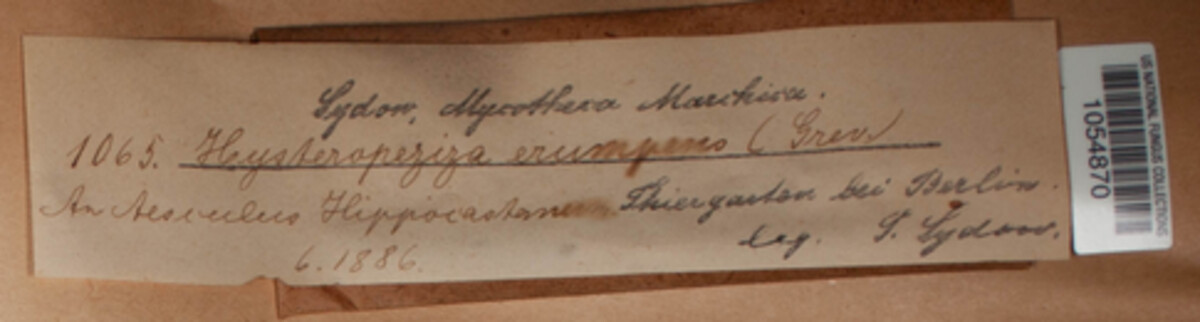 Sydow, Mycotheca Marchica.
1065. Hysteropeziza erumpens (Grev)
An Aesculus Hippocastanum Thiergarten bei Berlin.
6.1886. leg. P. Sydow.
US NATIONAL FUNGUS COLLECTIONS
1054870